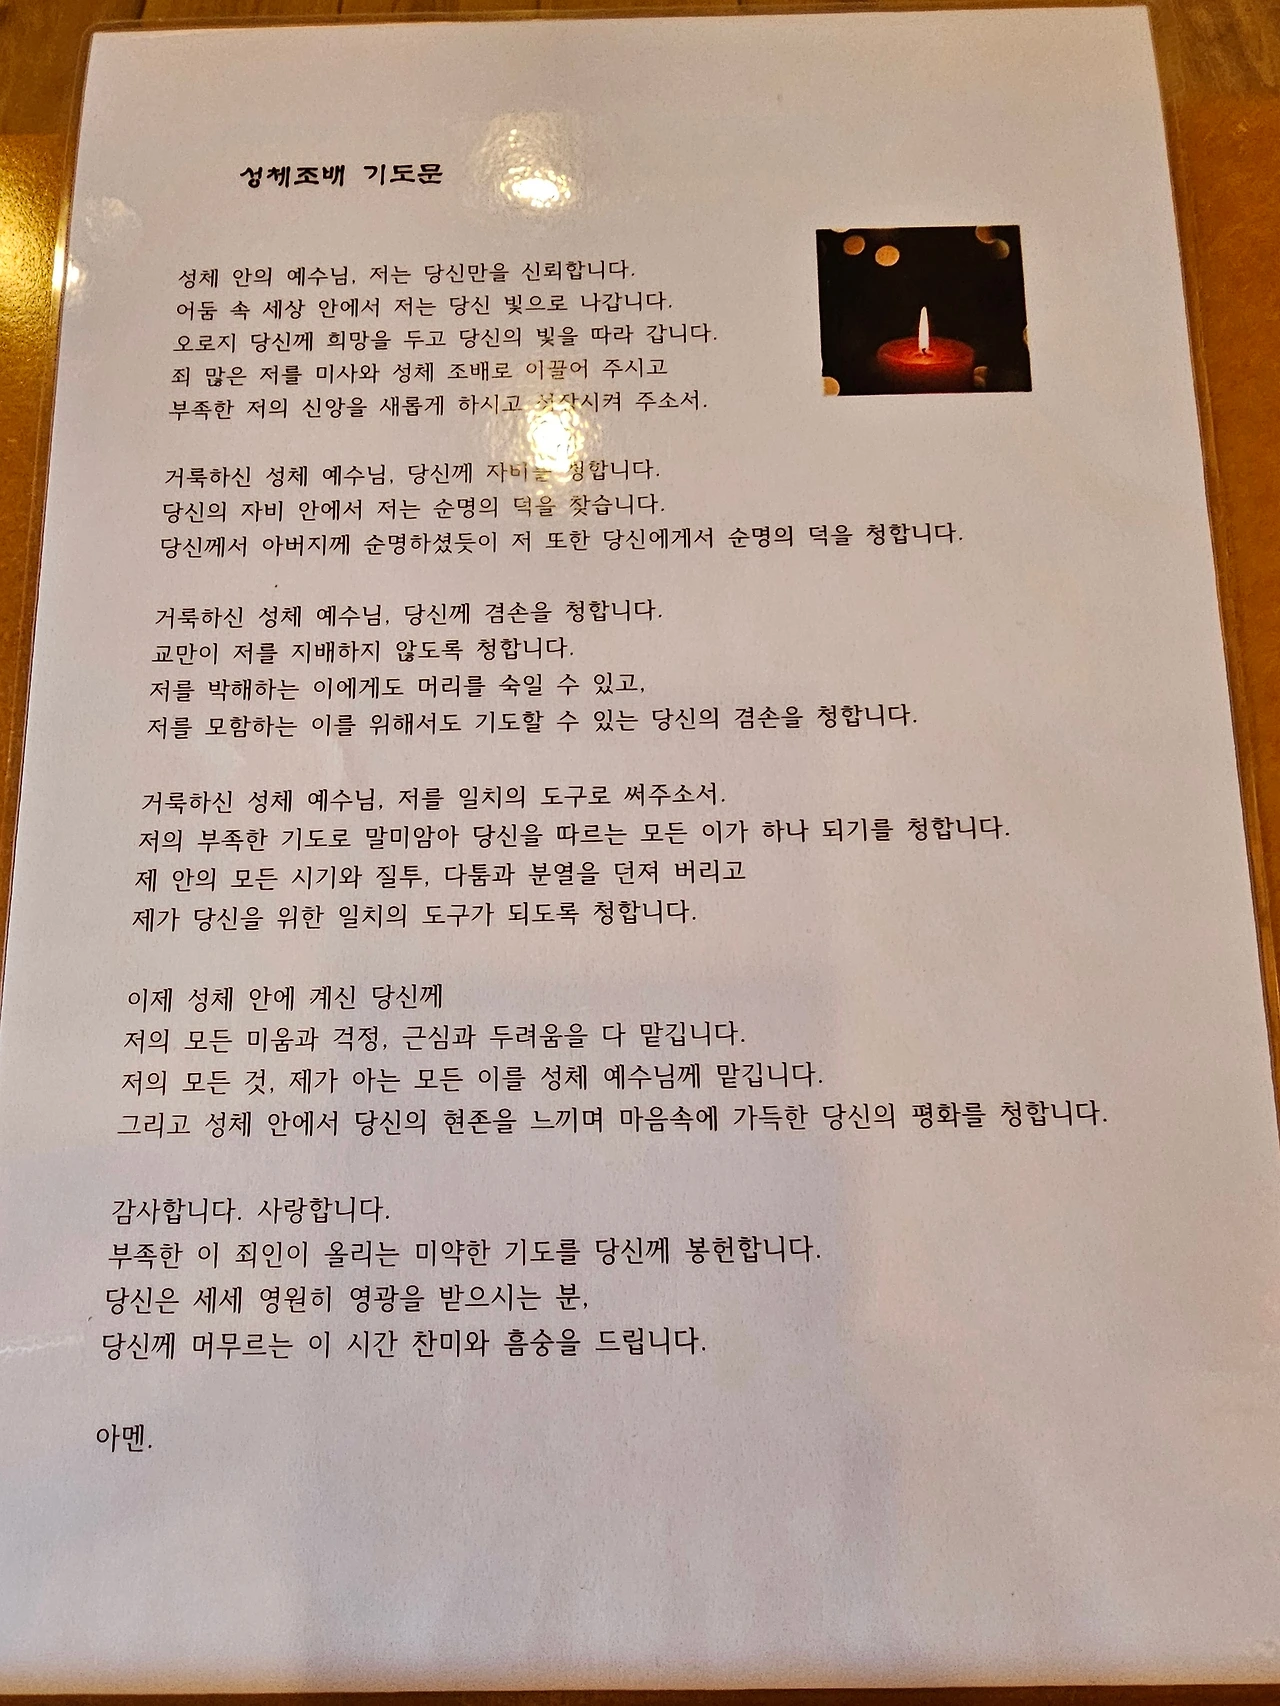 성체조배 기도문
성체 안의 예수님, 저는 당신만을 신뢰합니다.
어둠 속 세상 안에서 저는 당신 빛으로 나갑니다.
오로지 당신께 희망을 두고 당신의 빛을 따라 갑니다.
죄 많은 저를 미사와 성체 조배로 이끌어 주시고
부족한 저의 신앙을 새롭게 하시고 성장시켜 주소서.
거룩하신 성체 예수님, 당신께 자비를 청합니다.
당신의 자비 안에서 저는 순명의 덕을 찾습니다.
당신께서 아버지께 순명하셨듯이 저 또한 당신에게서 순명의 덕을 청합니다.
거룩하신 성체 예수님, 당신께 겸손을 청합니다.
교만이 저를 지배하지 않도록 청합니다.
저를 박해하는 이에게도 머리를 숙일 수 있고,
저를 모함하는 이를 위해서도 기도할 수 있는 당신의 겸손을 청합니다.
거룩하신 성체 예수님, 저를 일치의 도구로 써주소서.
저의 부족한 기도로 말미암아 당신을 따르는 모든 이가 하나 되기를 청합니다.
제 안의 모든 시기와 질투, 다툼과 분열을 던져 버리고
제가 당신을 위한 일치의 도구가 되도록 청합니다.
이제 성체 안에 계신 당신께
저의 모든 미움과 걱정, 근심과 두려움을 다 맡깁니다.
저의 모든 것, 제가 아는 모든 이를 성체 예수님께 맡깁니다.
그리고 성체 안에서 당신의 현존을 느끼며 마음속에 가득한 당신의 평화를 청합니다.
감사합니다. 사랑합니다.
부족한 이 죄인이 올리는 미약한 기도를 당신께 봉헌합니다.
당신은 세세 영원히 영광을 받으시는 분,
당신께 머무르는 이 시간 찬미와 흠숭을 드립니다.
아멘.